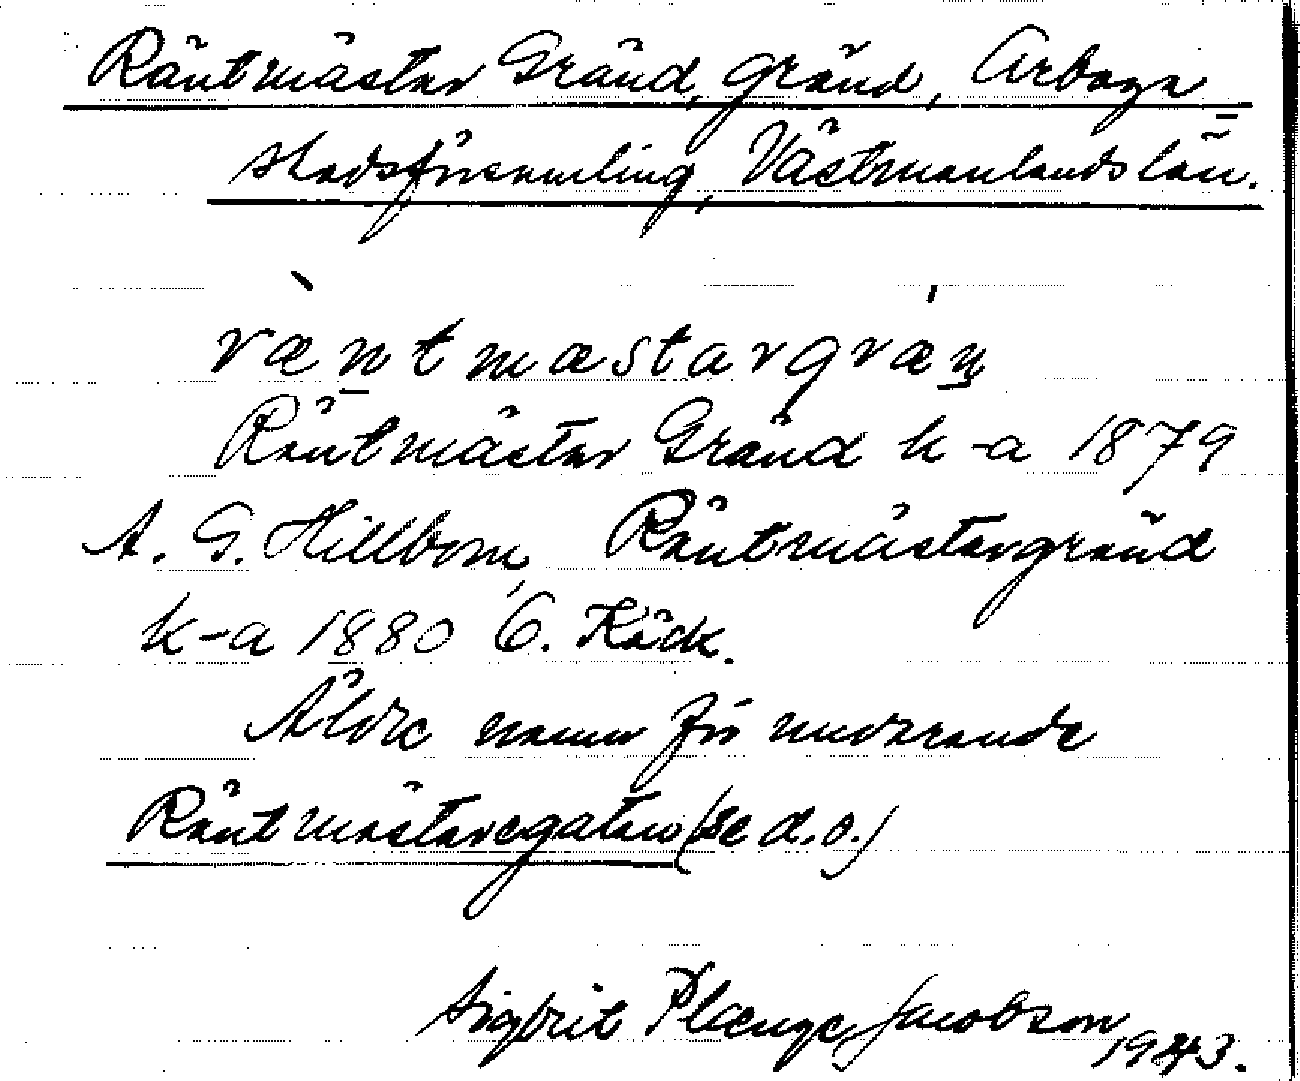 Räntmästar Gränd, gränd, Arboga
stadsförsamling, Västmanlands län.
ræntmæstargræn
Räntmästar Gränd k-a 1879
A. G. Hillbom, Räntmästargränd
k-a 1880 C. Käck.
Äldre namn för nuvarande
Räntmästaregatan (se d. o.)
Sigbrit Plænge Jacobson
1943.